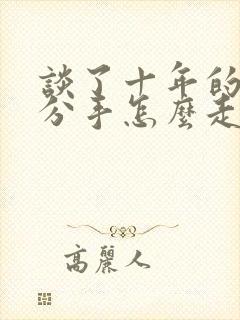 談了十年的
分手怎麼走
高麗人